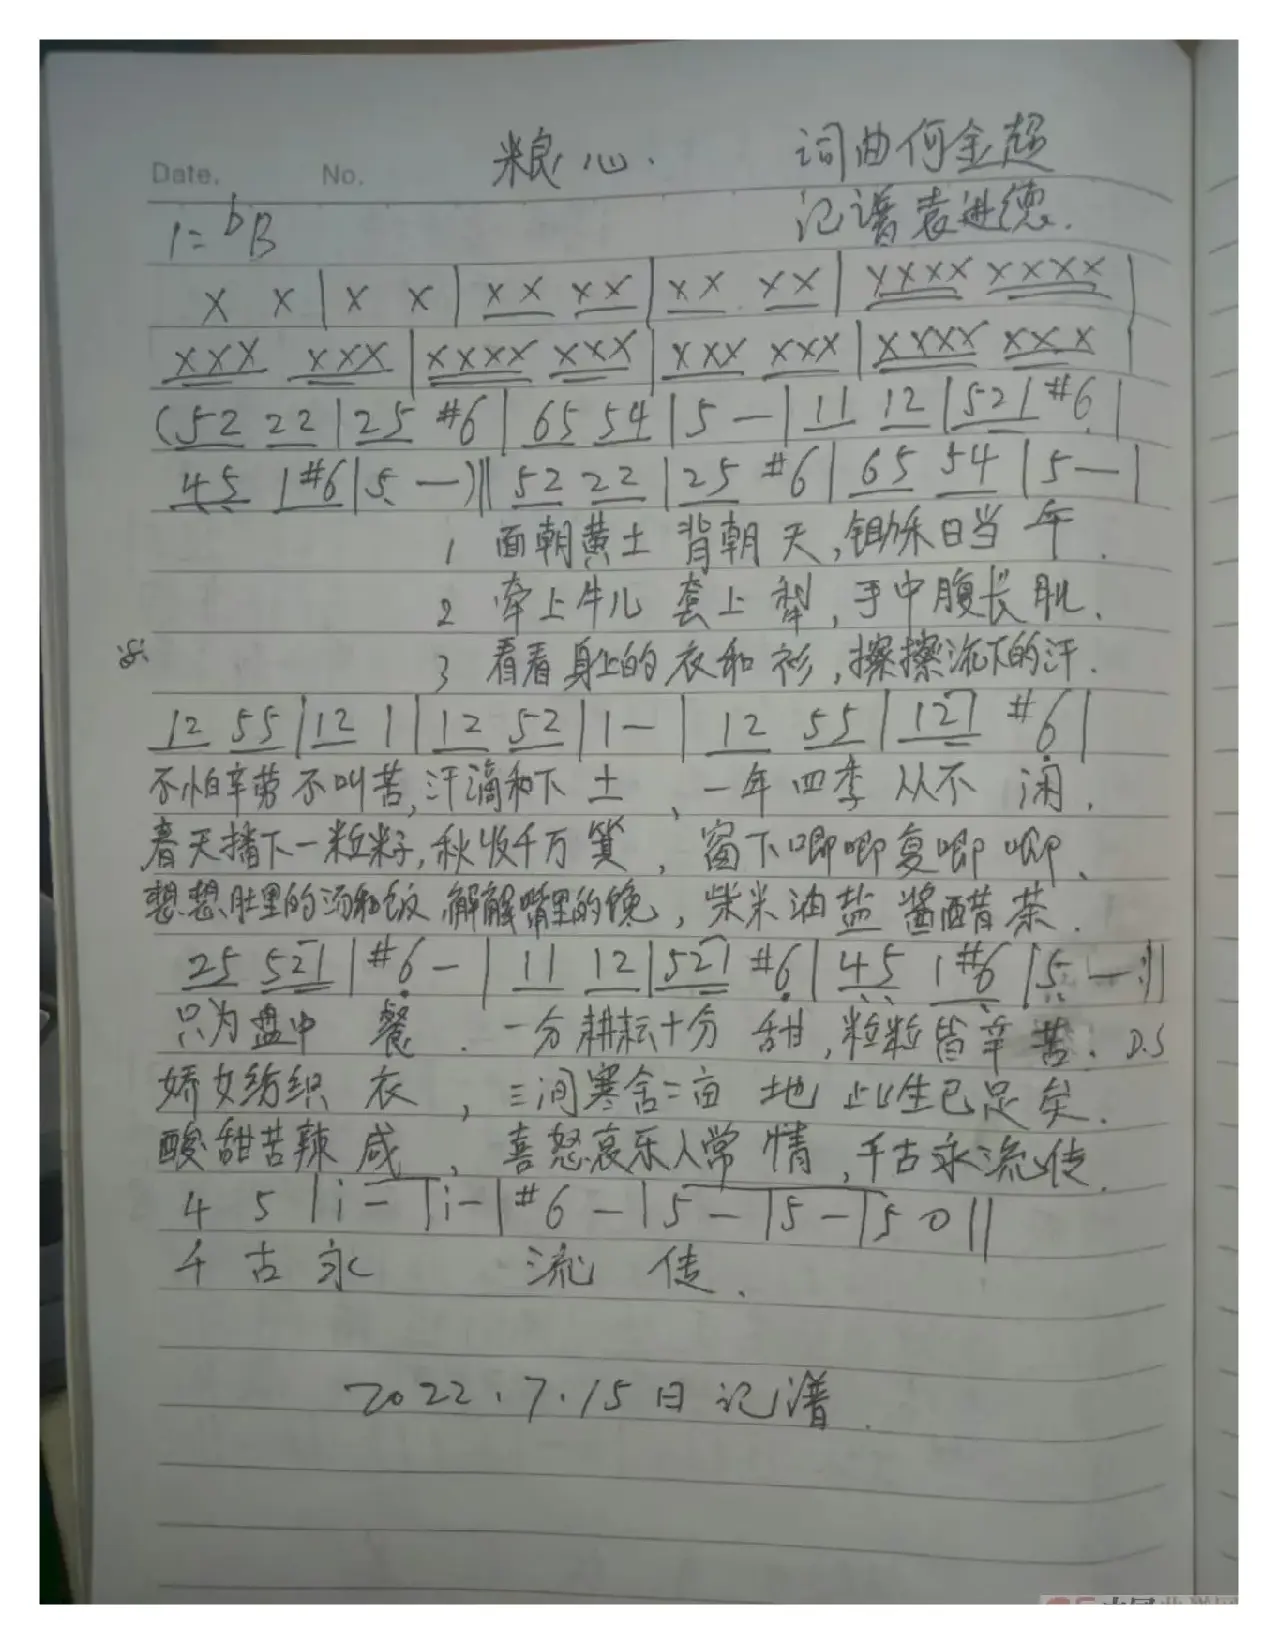 Date. No. 粮心. 词曲何金超
记谱袁进德.
1=bB
X X | X X | XX XX | XX XX | XXXX XXXX |
XXX XXX | XXXX XXX | XXX XXX | XXXX XXX |
(52 22 | 25 #6 | 65 54 | 5 — | 11 12 | 521 #6 |
45 1#6 | 5 —)‖ 52 22 | 25 #6 | 65 54 | 5 — |
1 面朝黄土 背朝天,锄禾日当午.
2 牵上牛儿 套上犁,手中腹长肌.
3 看看身上的衣和衫,擦擦流下的汗.
12 55 | 12 1 | 12 52 | 1 — | 12 55 | 121 #6 |
不怕辛劳不叫苦,汗滴和下土、一年四季从不闲.
春天播下一粒籽,秋收千万箕,窗下唧唧复唧唧、
想想肚里的汤和饭 解解嘴里的馋,柴米油盐酱醋茶.
25 521 | #6 — | 11 12 | 521 #6 | 45 1#6 | 5 — :‖
只为盘中餐.一分耕耘十分甜,粒粒皆辛苦. D.S
娇女纺织衣,三间寒舍二亩地 此生已足矣.
酸甜苦辣咸,喜怒哀乐人常情,千古永流传.
4 5 | i — | i — | #6 — | 5 — | 5 — | 5 0 ‖
千古永 流传.
2022.7.15日记谱.